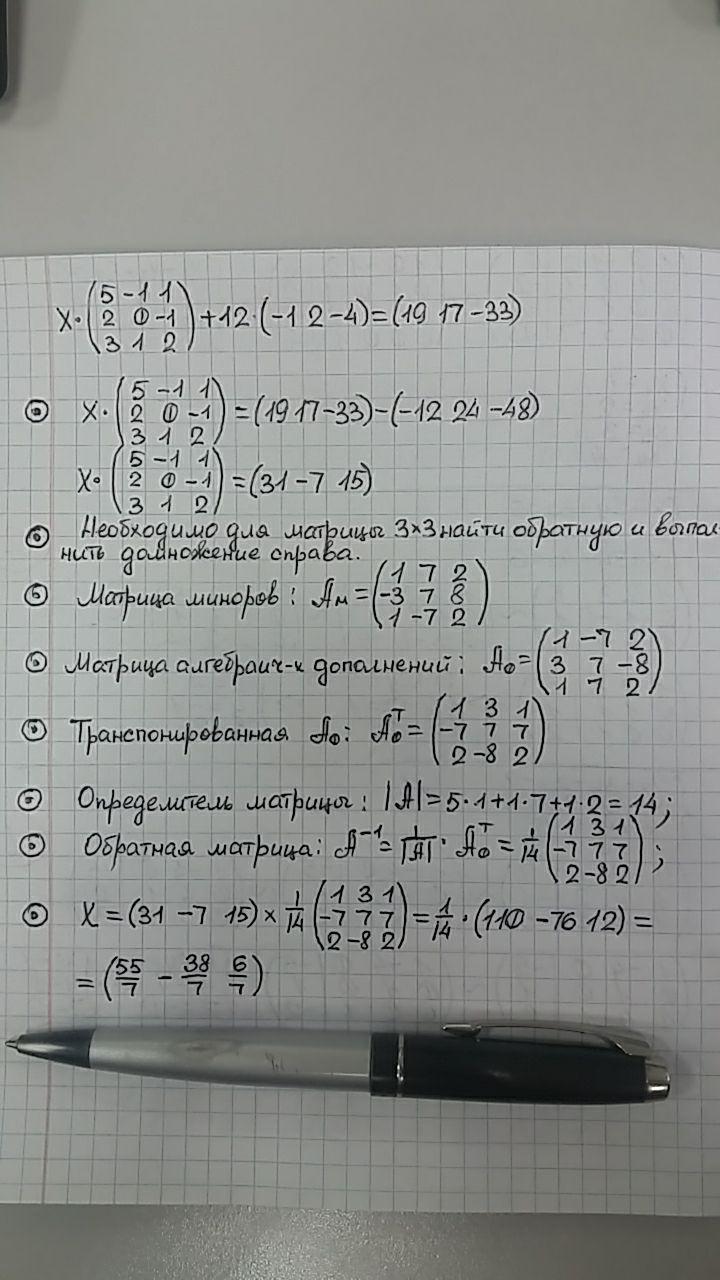 X·(5 -1 1
2 0 -1
3 1 2) + 12·(-1 2 -4) = (19 17 -33)
X·(5 -1 1
2 0 -1
3 1 2) = (19 17 -33) - (-12 24 -48)
X·(5 -1 1
2 0 -1
3 1 2) = (31 -7 15)
Необходимо для матрицы 3×3 найти обратную и выпол-
нить домножение справа.
Матрица миноров: Aм = (1 7 2
-3 7 8
1 -7 2)
Матрица алгебраич-х дополнений: Aф = (1 -7 2
3 7 -8
1 7 2)
Транспонированная Aф: Aф^T = (1 3 1
-7 7 7
2 -8 2)
Определитель матрицы: |A| = 5·1+1·7+1·2 = 14;
Обратная матрица: A^-1 = 1/|A| · Aф^T = 1/14 (1 3 1
-7 7 7
2 -8 2);
X = (31 -7 15) × 1/14 (1 3 1
-7 7 7
2 -8 2) = 1/14 · (110 -76 12) =
= (55/7 - 38/7 6/7)